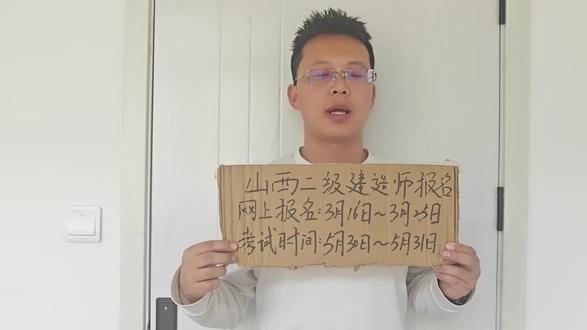 山西二级建造师报名
网上报名:3月16日~3月25日
考试时间:5月30日~5月31日